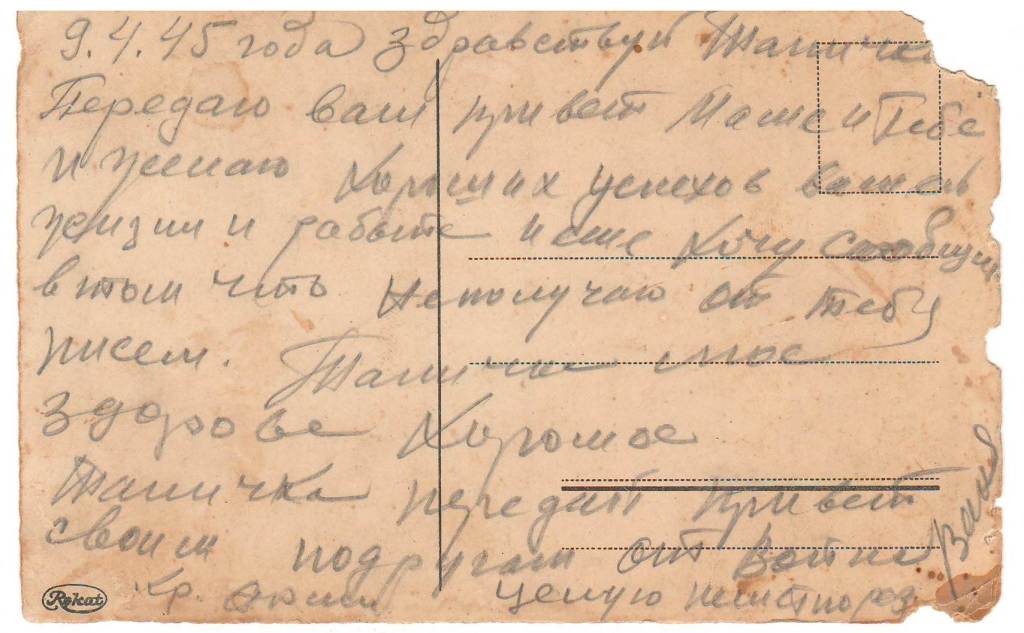 9.4.45 года здравствуй Таничка
Передаю вам привет Маше и Тебе
и желаю хороших успехов вашей
жизни и работе и еше хочу сообщить
втом что неполучаю от тебя
писем. Таничка мое
здорове хорошое
Таничка передай привет
своим подругам от Войни
Кр. Армии целую
Ваня
Rokat